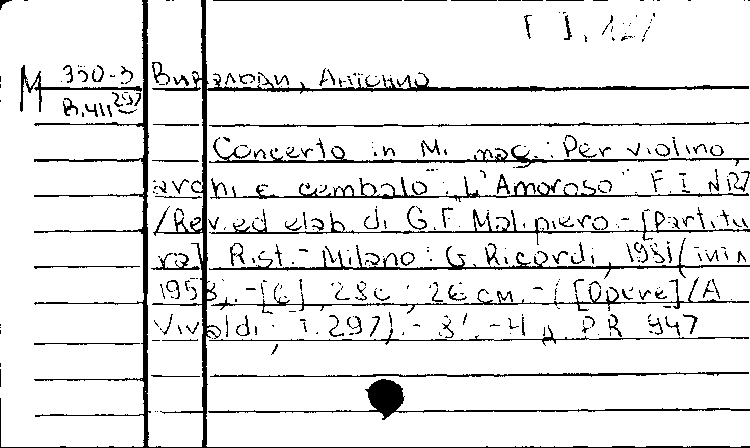 [ ], 121
М 350-3 Вивалди, Антонио
В.411 297
Concerto in Mi mag.: Per violino,
archi e cembalo: "L'Amoroso": F.I N127
/Rev. ed elab. di G.F. Malipiero. - [Partitu-
ra]. Rist. - Milano: G. Ricordi, 1981
1958. - [6], 28 c.; 26 см. - ([Opere]/A
Vivaldi; T. 297). - P.R 947